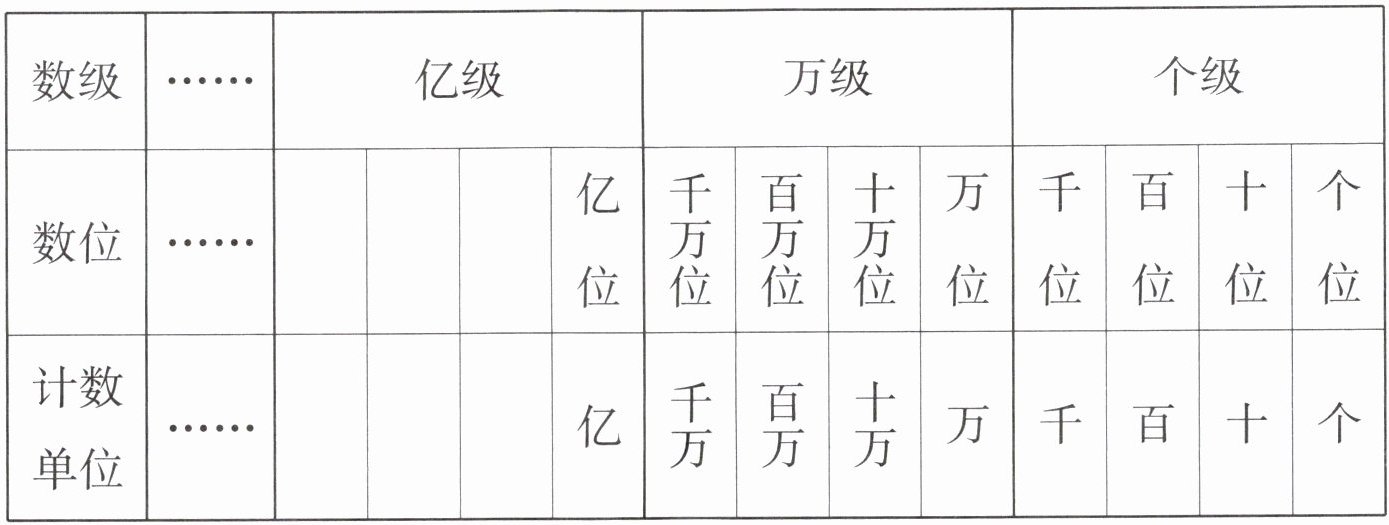 数级 …… 亿级 万级 个级
数位 …… 亿位 千万位 百万位 十万位 万位 千位 百位 十位 个位
计数单位 …… 亿 千万 百万 十万 万 千 百 十 个